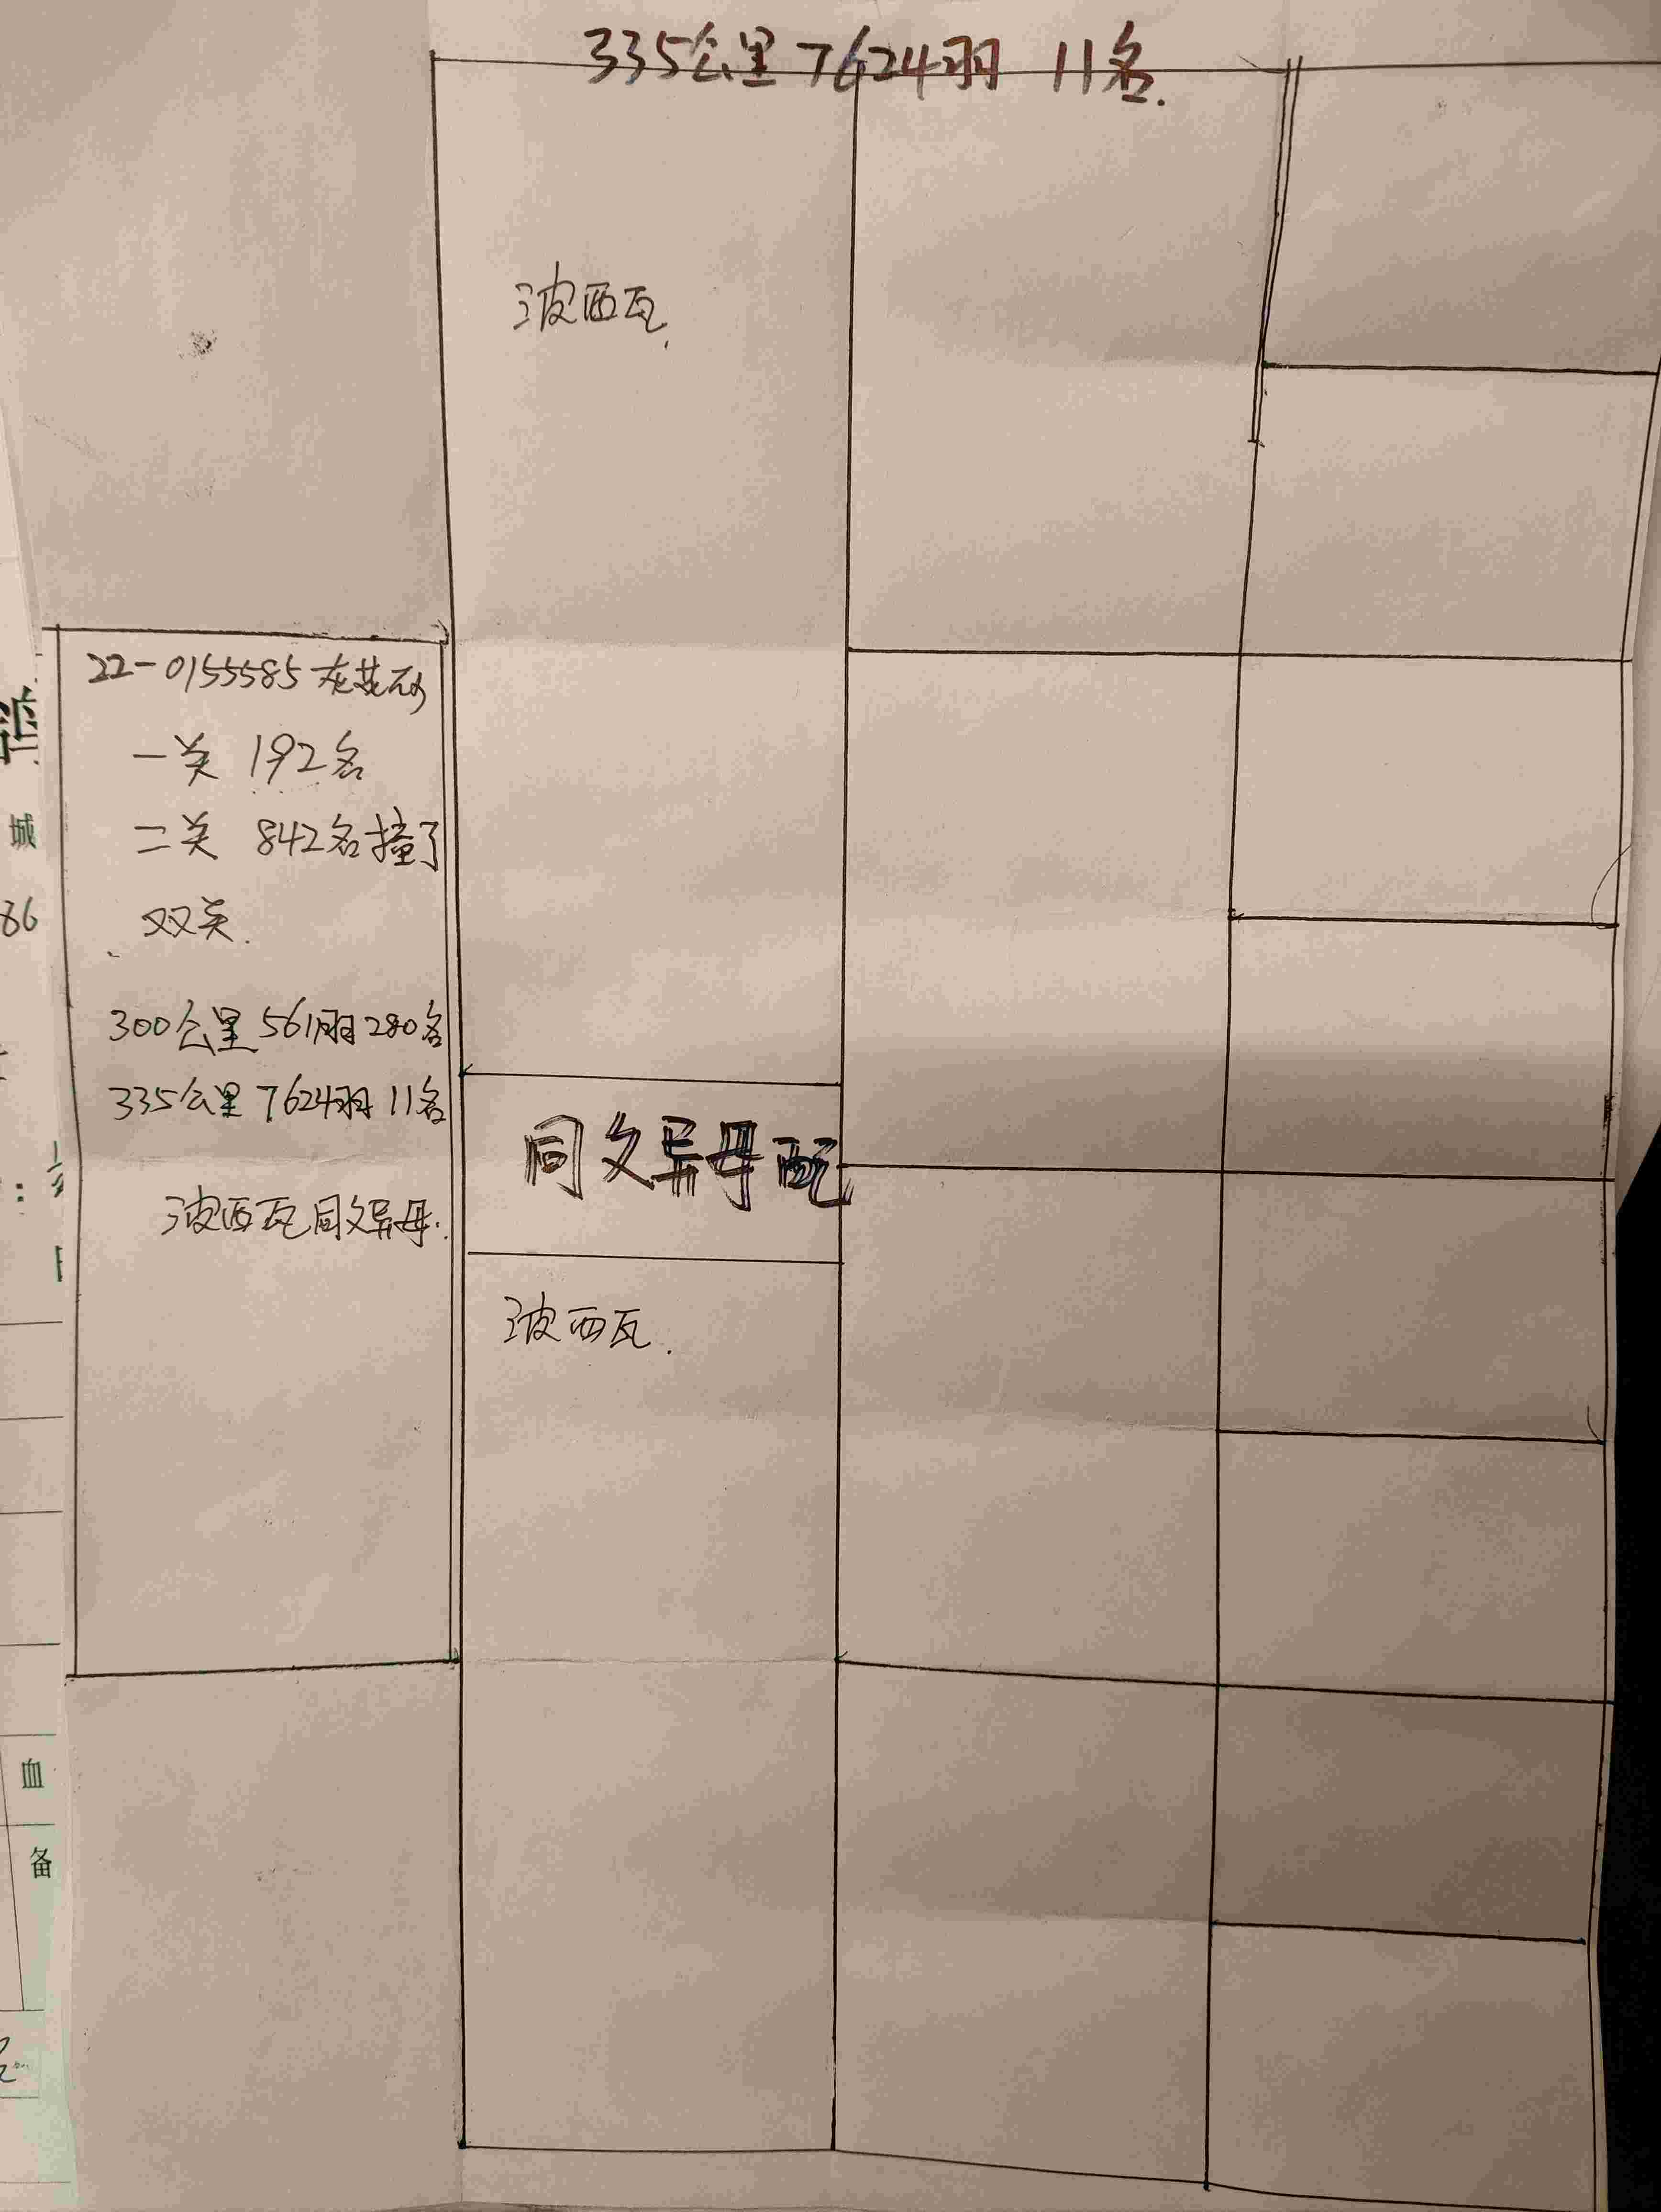 335公里 7624羽 11名.
波西瓦.
22-0155585 灰花砂
一关 192名
二关 842名撞了
双关.
300公里 561羽 280名
335公里 7624羽 11名
波西瓦同父异母.
同父异母配
波西瓦.
城
86
血
备